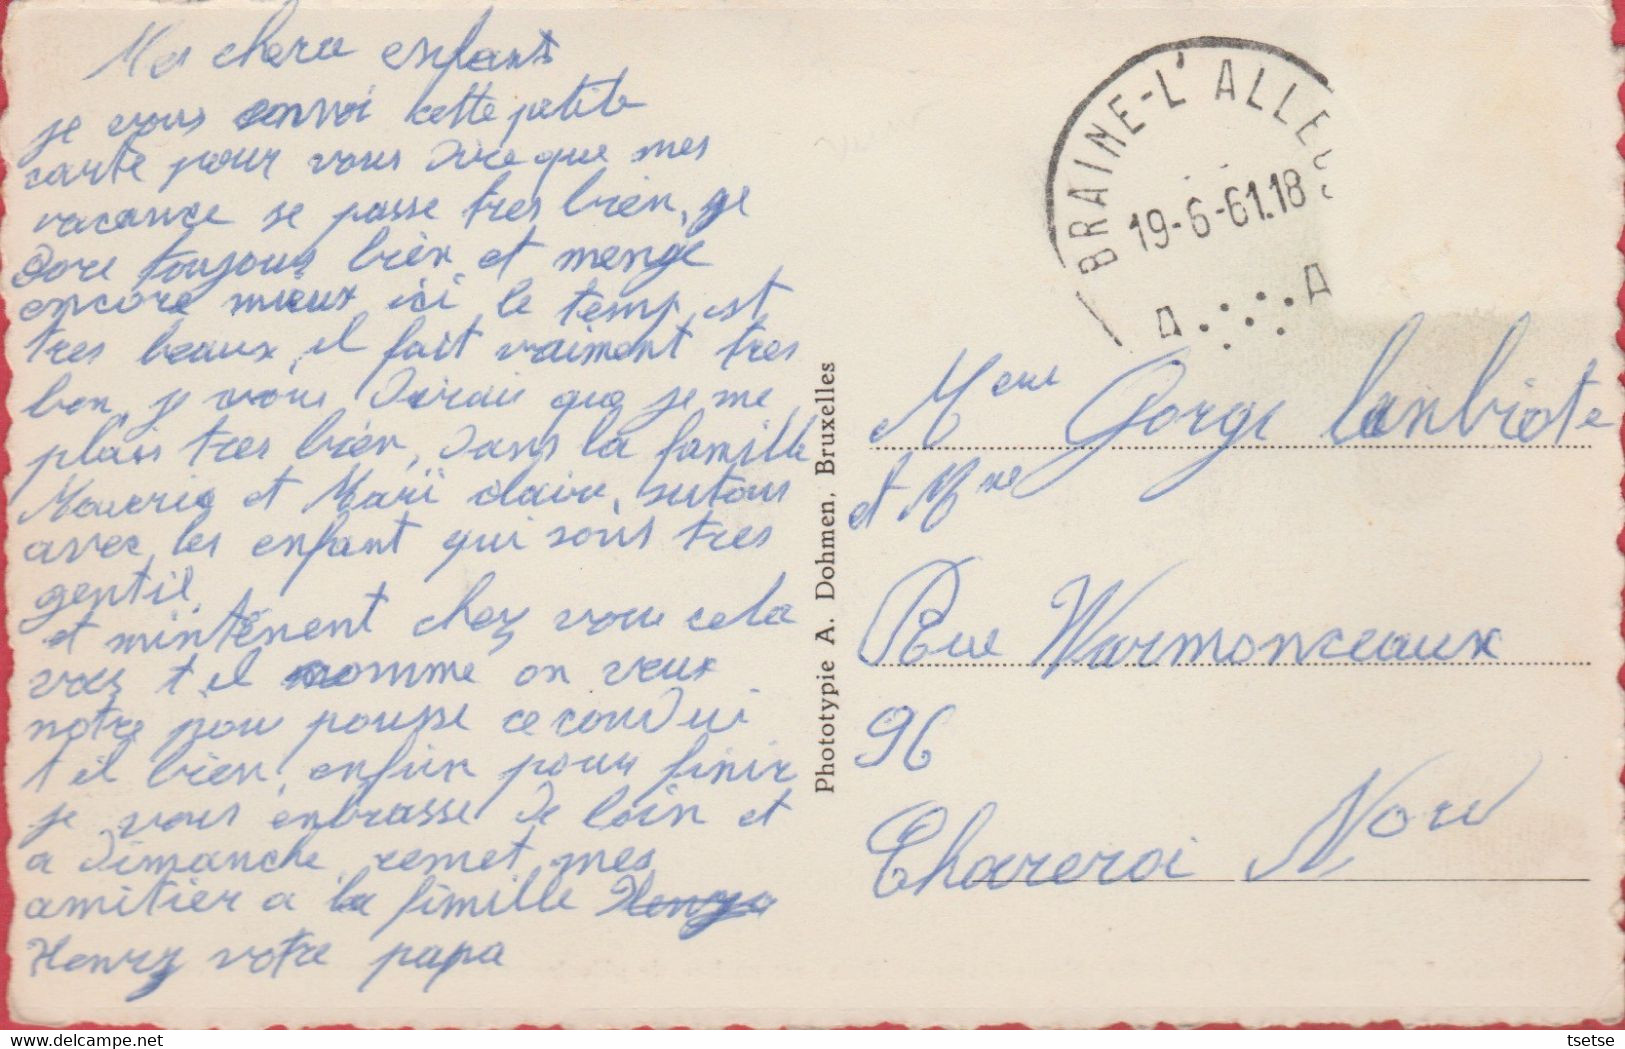 Mes cheru enfants
je vous envoi cette petite
carte pour vous dire que mes
vacance se passe tres bien, ge
dore toujours bien et menge
encore mieux ici le temp est
tres beaux, il fait vraiment tres
bon, je vous dirais que je me
plais tres bien, dans la famille
Maurie et Mari claire, surtous
avec les enfant qui sons tres
gentil.
et mintenent chez vous cela
vas t'il comme on veux
notre pou pousse ce condui
t'il bien, enfin pour finir
je vous enbrasse de loin et
a dimanche remet mes
amitier a la fimille
Henry votre papa
Phototypie A. Dohmen, Bruxelles
BRAINE-L'ALLEU
19-6-61.18
A A
Gorge Lanbiote
et Mme
Rue Warmonceaux
96
Chareroi Nord
tsetse